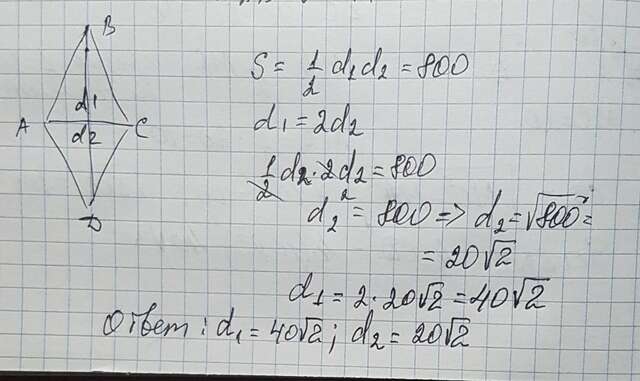 B
A
d1
d2
C
D
S = 1/2 d1d2 = 800
d1 = 2d2
1/2 d2 · 2d2 = 800
d2² = 800 => d2 = √800 =
= 20√2
d1 = 2 · 20√2 = 40√2
Ответ : d1 = 40√2 ; d2 = 20√2